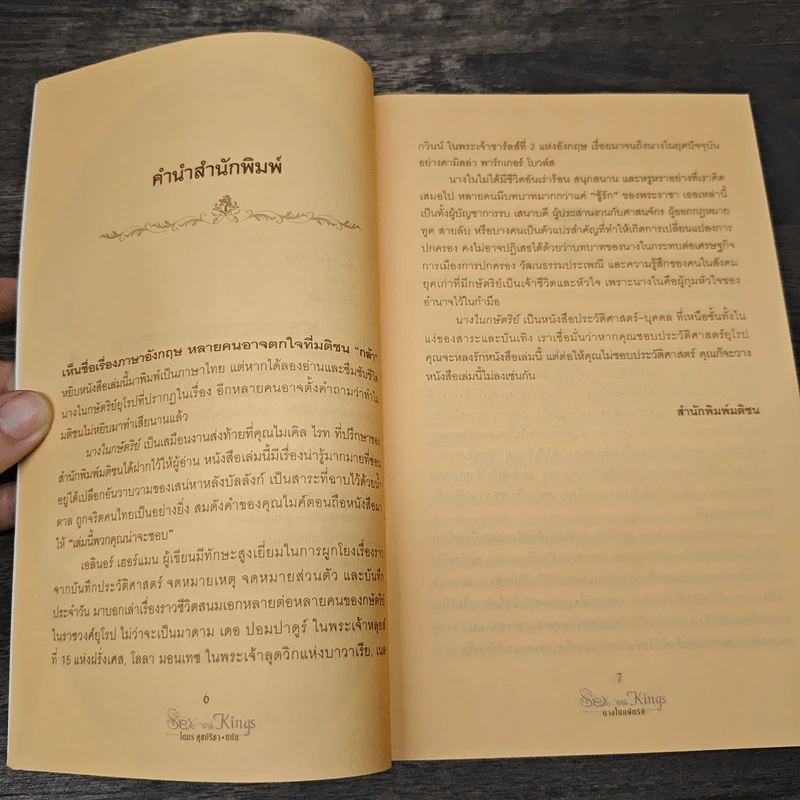 คำนำสำนักพิมพ์
เห็นชื่อเรื่องภาษาอังกฤษ หลายคนอาจตกใจที่มติชน "กล้า"
หยิบหนังสือเล่มนี้มาพิมพ์เป็นภาษาไทย แต่หากได้ลองอ่านและซึมซับชีวิต
นางในกษัตริย์ยุโรปที่ปรากฏในเรื่อง อีกหลายคนอาจตั้งคำถามว่าทำไม
มติชนไม่หยิบมาทำเสียนานแล้ว
นางในกษัตริย์ เป็นเสมือนงานส่งท้ายที่คุณไมเคิล ไรท ที่ปรึกษาของ
สำนักพิมพ์มติชนได้ฝากไว้ให้ผู้อ่าน หนังสือเล่มนี้มีเรื่องน่ารู้มากมายที่ซ่อน
อยู่ใต้เปลือกอันวาบวามของเสน่หาหลังบัลลังก์ เป็นสาระที่ฉาบไว้ด้วยน้ำ
ตาล ถูกจริตคนไทยเป็นอย่างยิ่ง สมดังคำของคุณไมค์ตอนถือหนังสือมา
ให้ "เล่มนี้พวกคุณน่าจะชอบ"
เอลินอร์ เฮอร์แมน ผู้เขียนมีทักษะสูงเยี่ยมในการผูกโยงเรื่องราว
จากบันทึกประวัติศาสตร์ จดหมายเหตุ จดหมายส่วนตัว และบันทึก
ประจำวัน มาบอกเล่าเรื่องราวชีวิตสนมเอกหลายต่อหลายคนของกษัตริย์
ในราชวงศ์ยุโรป ไม่ว่าจะเป็นมาดาม เดอ ปอมปาดูร์ ในพระเจ้าหลุยส์
ที่ 15 แห่งฝรั่งเศส, โลลา มอนเทซ ในพระเจ้าลุดวิกแห่งบาวาเรีย, เนล
6
Sex With Kings
โตมร ศุขปรีชา • แปล
กวินน์ ในพระเจ้าชาร์ลส์ที่ 2 แห่งอังกฤษ เรื่อยมาจนถึงนางในยุคปัจจุบัน
อย่างคามิลล่า พาร์กเกอร์ โบวล์ส
นางในไม่ได้มีชีวิตอันเร่าร้อน สนุกสนาน และหรูหราอย่างที่เราคิด
เสมอไป หลายคนมีบทบาทมากกว่าแค่ "ชู้รัก" ของพระราชา เธอเหล่านี้
เป็นทั้งผู้บัญชาการรบ เสนาบดี ผู้ประสานงานกับศาสนจักร ผู้ออกกฎหมาย
ทูต สายลับ หรือบางคนเป็นตัวแปรสำคัญที่ทำให้เกิดการเปลี่ยนแปลงการ
ปกครอง คงไม่อาจปฏิเสธได้ด้วยว่าบทบาทของนางในกระทบต่อเศรษฐกิจ
การเมืองการปกครอง วัฒนธรรมประเพณี และความรู้สึกของคนในสังคม
ยุคเก่าที่มีกษัตริย์เป็นเจ้าชีวิตและหัวใจ เพราะนางในคือผู้กุมหัวใจของ
อำนาจไว้ในกำมือ
นางในกษัตริย์ เป็นหนังสือประวัติศาสตร์-บุคคล ที่เหนือชั้นทั้งใน
แง่ของสาระและบันเทิง เราเชื่อมั่นว่าหากคุณชอบประวัติศาสตร์ยุโรป
คุณจะหลงรักหนังสือเล่มนี้ แต่ต่อให้คุณไม่ชอบประวัติศาสตร์ คุณก็จะวาง
หนังสือเล่มนี้ไม่ลงเช่นกัน
สำนักพิมพ์มติชน
7
Sex With Kings
นางในกษัตริย์